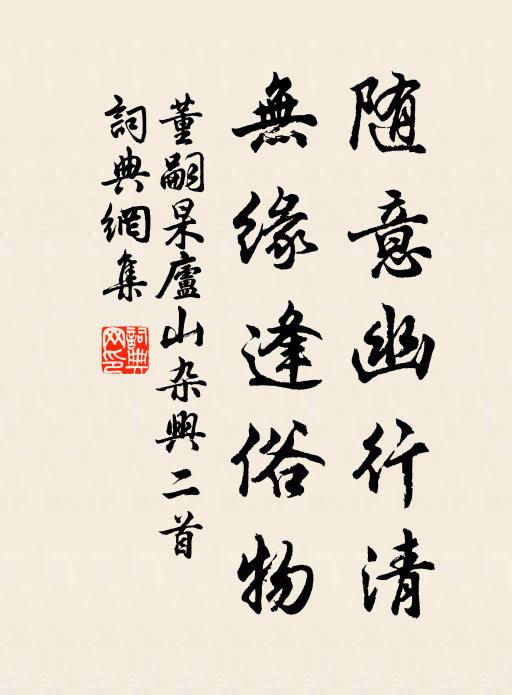 随意幽行清
無緣逢俗物
董嗣杲廬山杂興二首
詞典網集
詞典网印